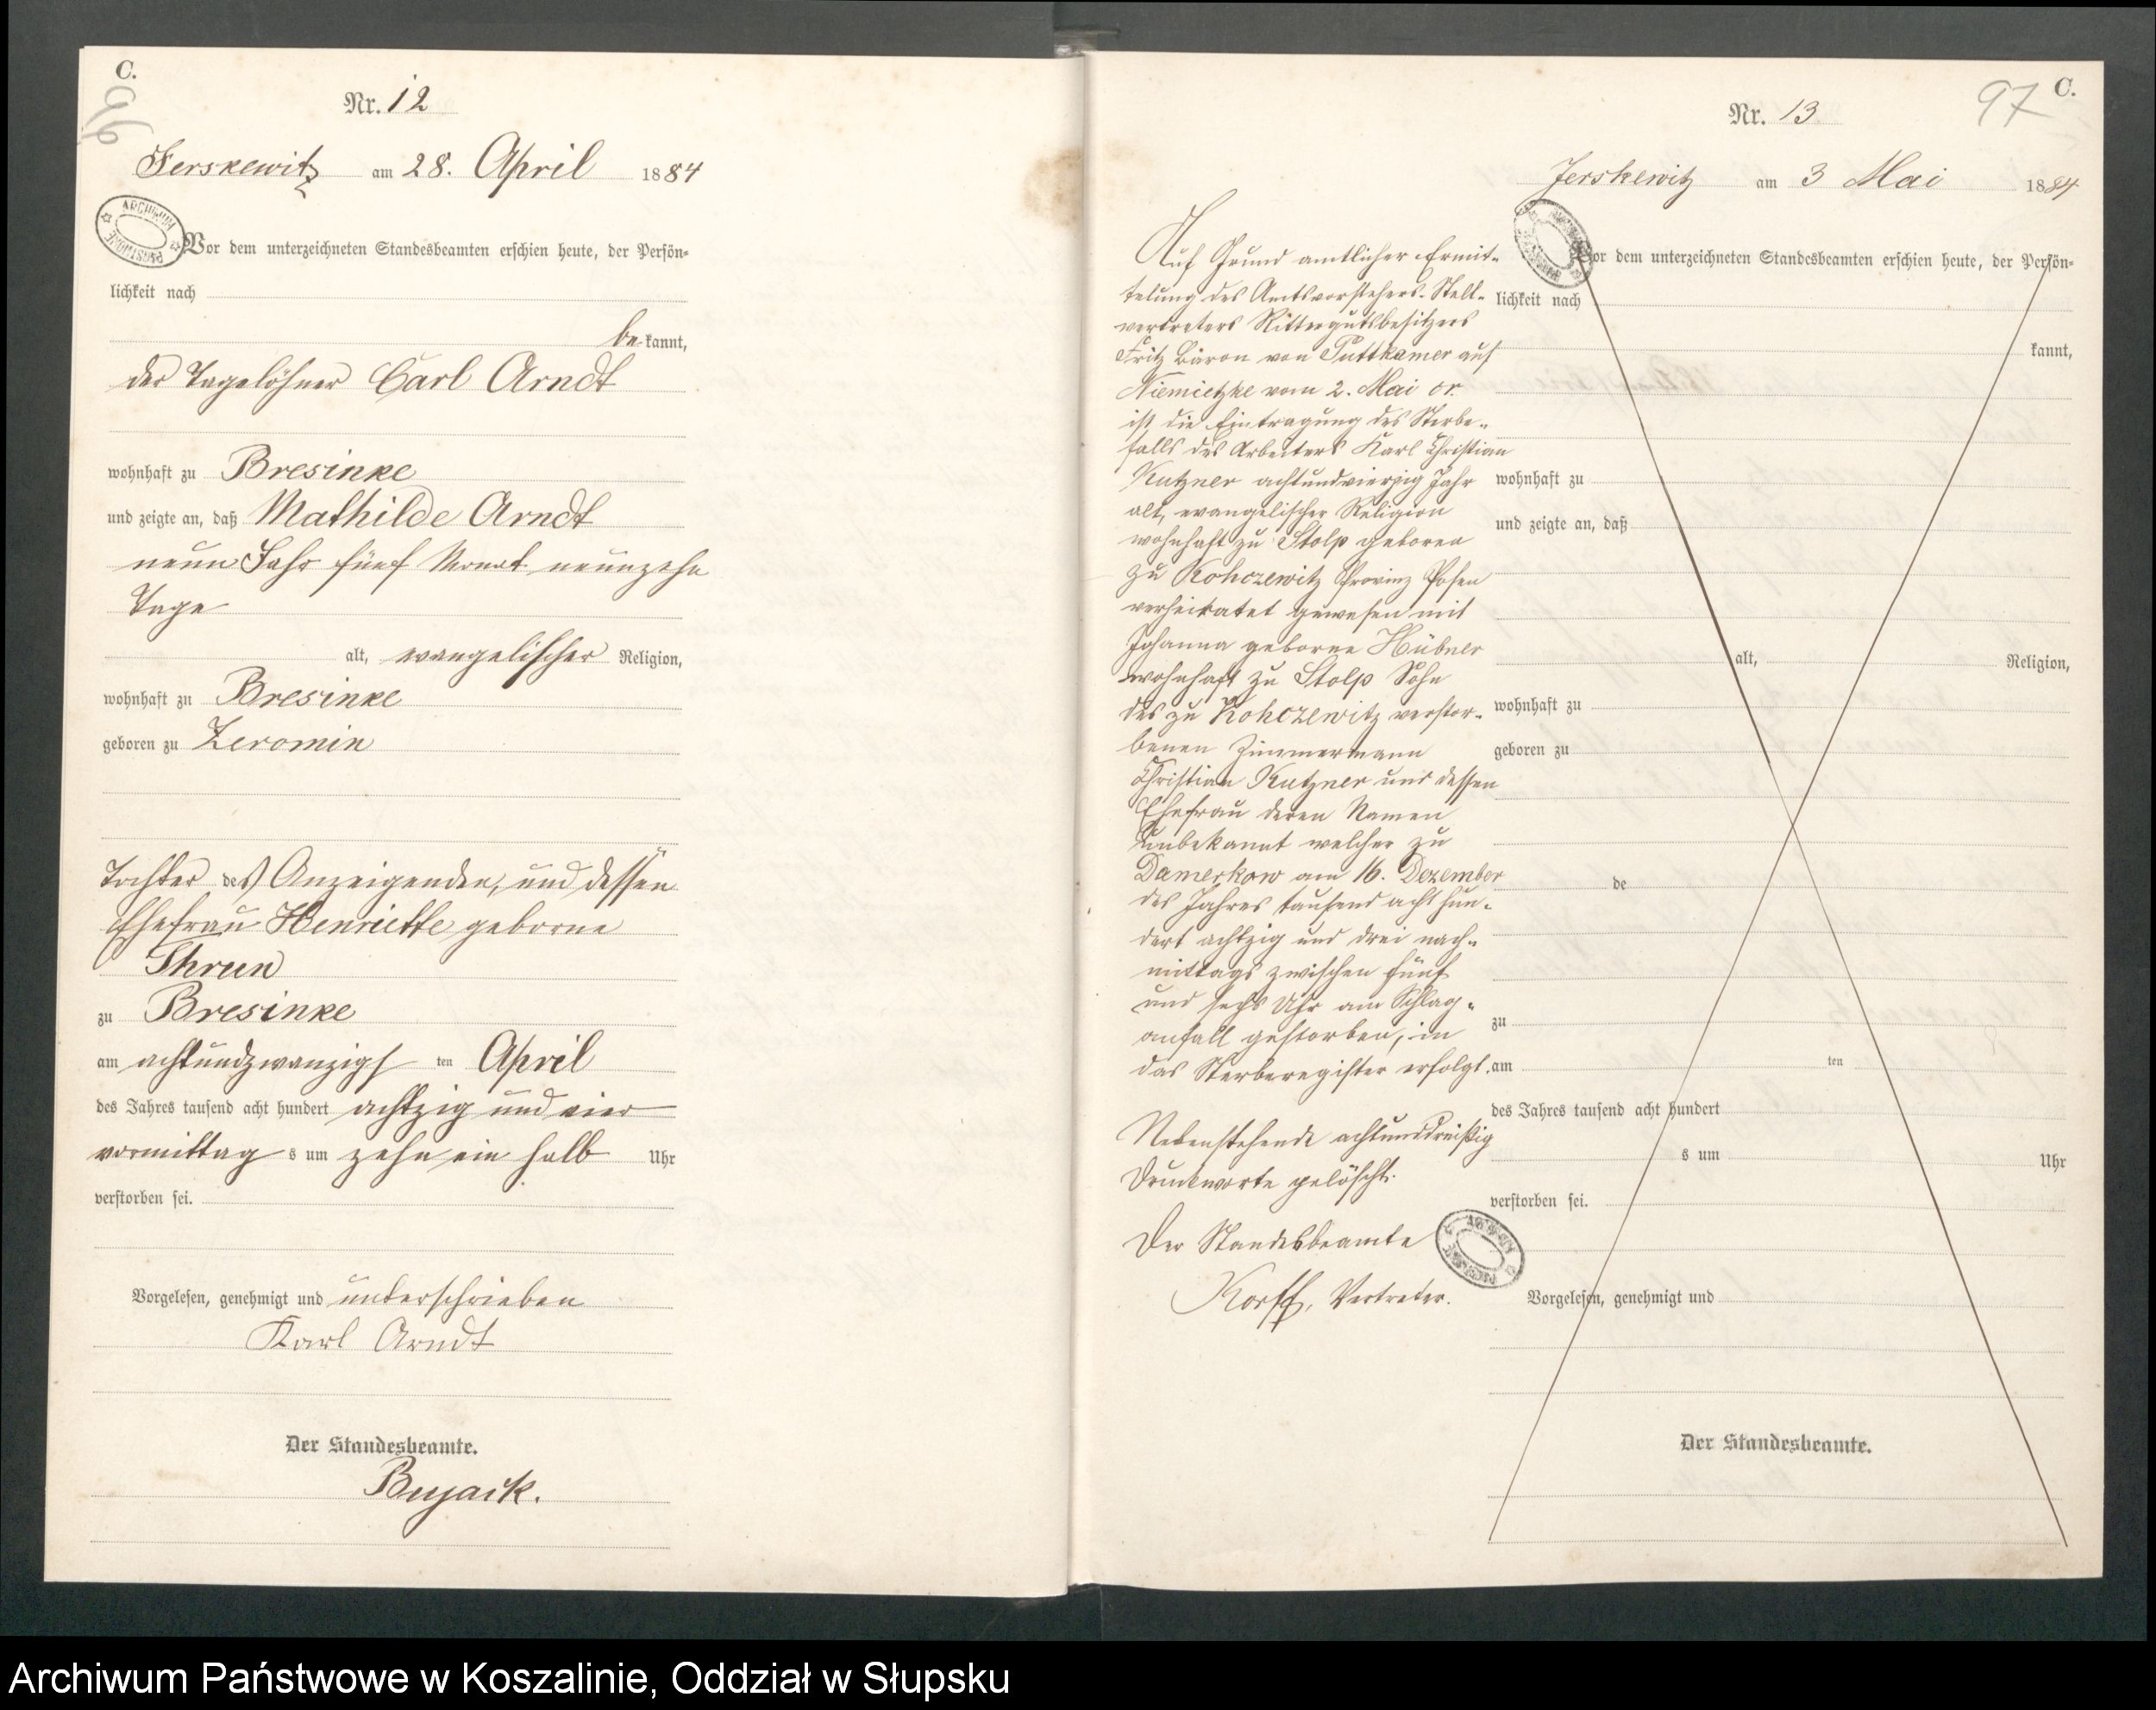 C.
96
Nr. 12
Jerskewitz am 28. April 1884
ARCHIWUM PAŃSTWOWE
Vor dem unterzeichneten Standesbeamten erschien heute, der Persön-
lichkeit nach
be kannt,
der Tagelöhner Carl Arndt
wohnhaft zu Bresinke
und zeigte an, daß Mathilde Arndt
neun Jahr fünf Monat neunzehn
Tage
alt, evangelischer Religion,
wohnhaft zu Bresinke
geboren zu Zeromin
Tochter des Anzeigenden, und dessen
Ehefrau Henriette geborne
Thrun
zu Bresinke
am achtundzwanzigs ten April
des Jahres tausend acht hundert achtzig und vier
vormittag s um zehn ein halb Uhr
verstorben sei.
Vorgelesen, genehmigt und unterschrieben
Karl Arndt
Der Standesbeamte.
Bujack.
C.
97
Nr. 13
Jerskewitz am 3 Mai 1884
Auf Grund amtlicher Ermit-
telung des Amtsvorstehers-Stell-
vertreters Rittergutsbesitzers
Fritz Baron von Puttkamer auf
Niemietzke vom 2. Mai cr.
ist die Eintragung des Sterbe-
falls des Arbeiters Karl Christian
Kutzner achtundvierzig Jahr
alt, evangelischer Religion
wohnhaft zu Stolp geboren
zu Kohczewitz Provinz Posen
verheiratet gewesen mit
Johanna geborne Hübner
wohnhaft zu Stolp Sohn
des zu Kohczewitz verstor-
benen Zimmermann
Christian Kutzner und dessen
Ehefrau deren Namen
unbekannt welcher zu
Damerkow am 16. Dezember
des Jahres tausend acht hun-
dert achtzig und drei nach-
mittags zwischen fünf
und sechs Uhr am Schlag-
anfall gestorben, in
das Sterberegister erfolgt.
Nebenstehende achtunddreißig
Druckworte gelöscht.
Der Standesbeamte
Korff, Vertreter.
ARCHIWUM PAŃSTWOWE
Vor dem unterzeichneten Standesbeamten erschien heute, der Persön-
lichkeit nach
kannt,
wohnhaft zu
und zeigte an, daß
alt, Religion,
wohnhaft zu
geboren zu
de
zu
am ten
des Jahres tausend acht hundert
s um Uhr
verstorben sei.
Vorgelesen, genehmigt und
Der Standesbeamte.
Archiwum Państwowe w Koszalinie, Oddział w Słupsku